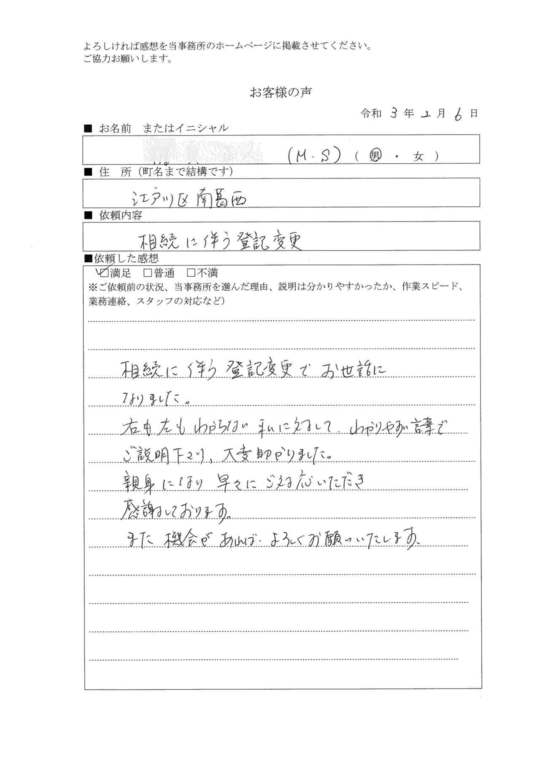 よろしければ感想を当事務所のホームページに掲載させてください。
ご協力お願いします。
お客様の声
令和 3 年 2 月 6 日
■ お名前 またはイニシャル
(M.S) ( 男 ・ 女 )
■ 住 所 (町名まで結構です)
江戸川区南葛西
■ 依頼内容
相続に伴う登記変更
■依頼した感想
☑満足 □普通 □不満
※ご依頼前の状況、当事務所を選んだ理由、説明は分かりやすかったか、作業スピード、
業務連絡、スタッフの対応など)
相続に伴う登記変更でお世話に
なりました。
右も左もわからない私に対して、わかりやすい言葉で
ご説明下さり、大変助かりました。
親身になり早々にご対応いただき
感謝しております。
また機会があれば、よろしくお願いいたします。